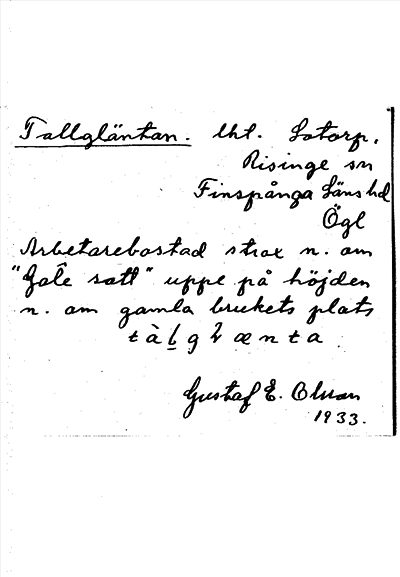 Tallgläntan. lht. Lotorp,
Risinge sn
Finspånga läns hd
Ögl
Arbetarebostad strax n. om
" satt" uppe på höjden
n. om gamla brukets plats
Gustaf E. Olsson
1933.